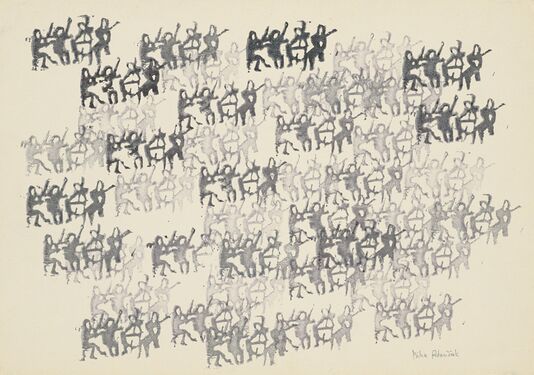 Milan Adamčiak